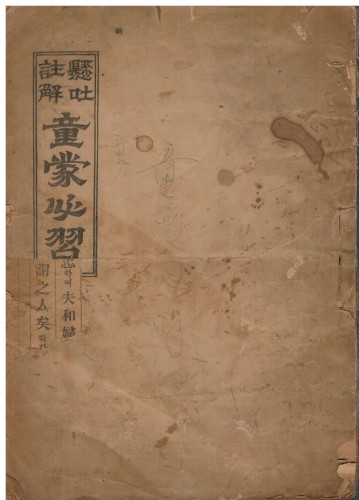 懸吐
註解
童蒙必習
하며 夫和婦
謂之人矣